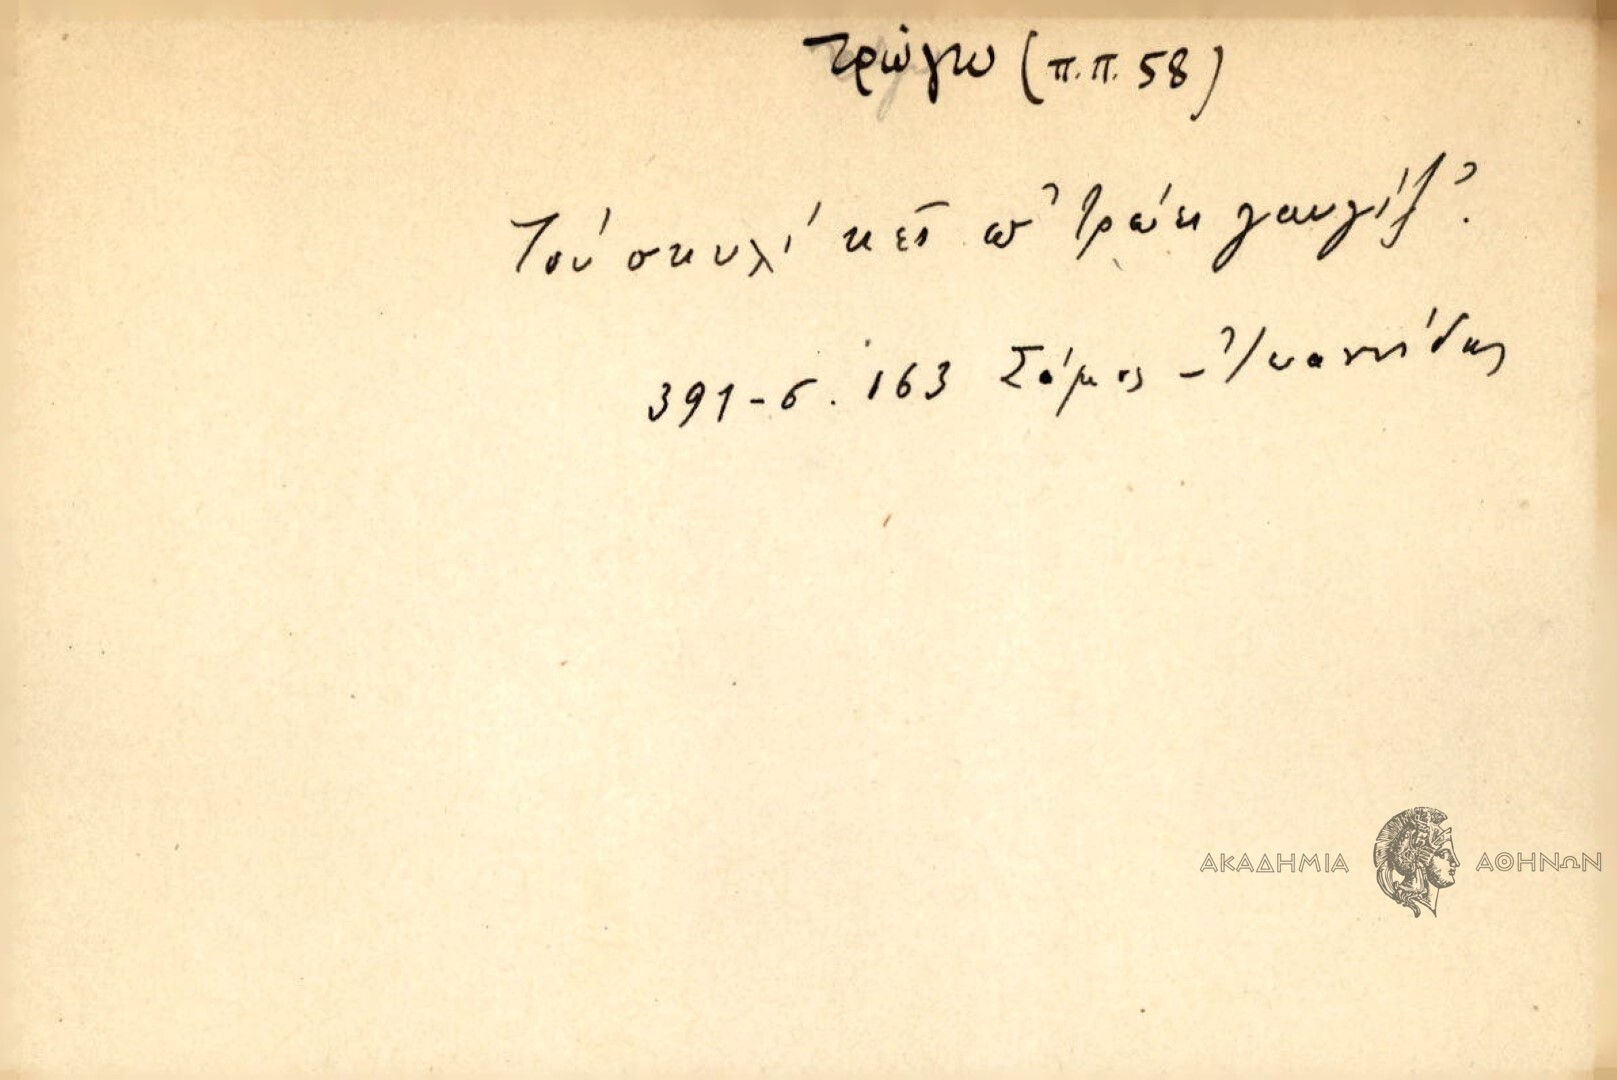 τρώγω (π.π. 58)
Τού σκυλί κεῖ π' τρώει γαυγίζ'.
391-σ. 163 Σάμος - Ἰωαννίδης
ΑΚΑΔΗΜΙΑ ΑΘΗΝΩΝ